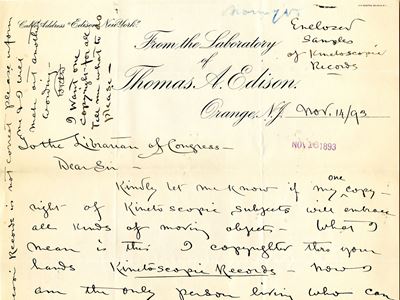 Cable Address "Edison, New York."
From the Laboratory
of
Thomas A. Edison.
Orange, N.J. Nov. 14/93
Enclosed
Samples
of Kinetoscopic
Records
NOV 16 1893
To the Librarian of Congress—
Dear Sir —
Kindly let me know if my one copy-
right of Kinetoscopic subjects will embrace
all kinds of moving objects— What I
mean is this I copyrighted thro your
hands Kinetoscopic Records — now I
am the only person living who can
Records is not correct please inform
me & I will
make out another
wording—
I want one
copyright for all
please—